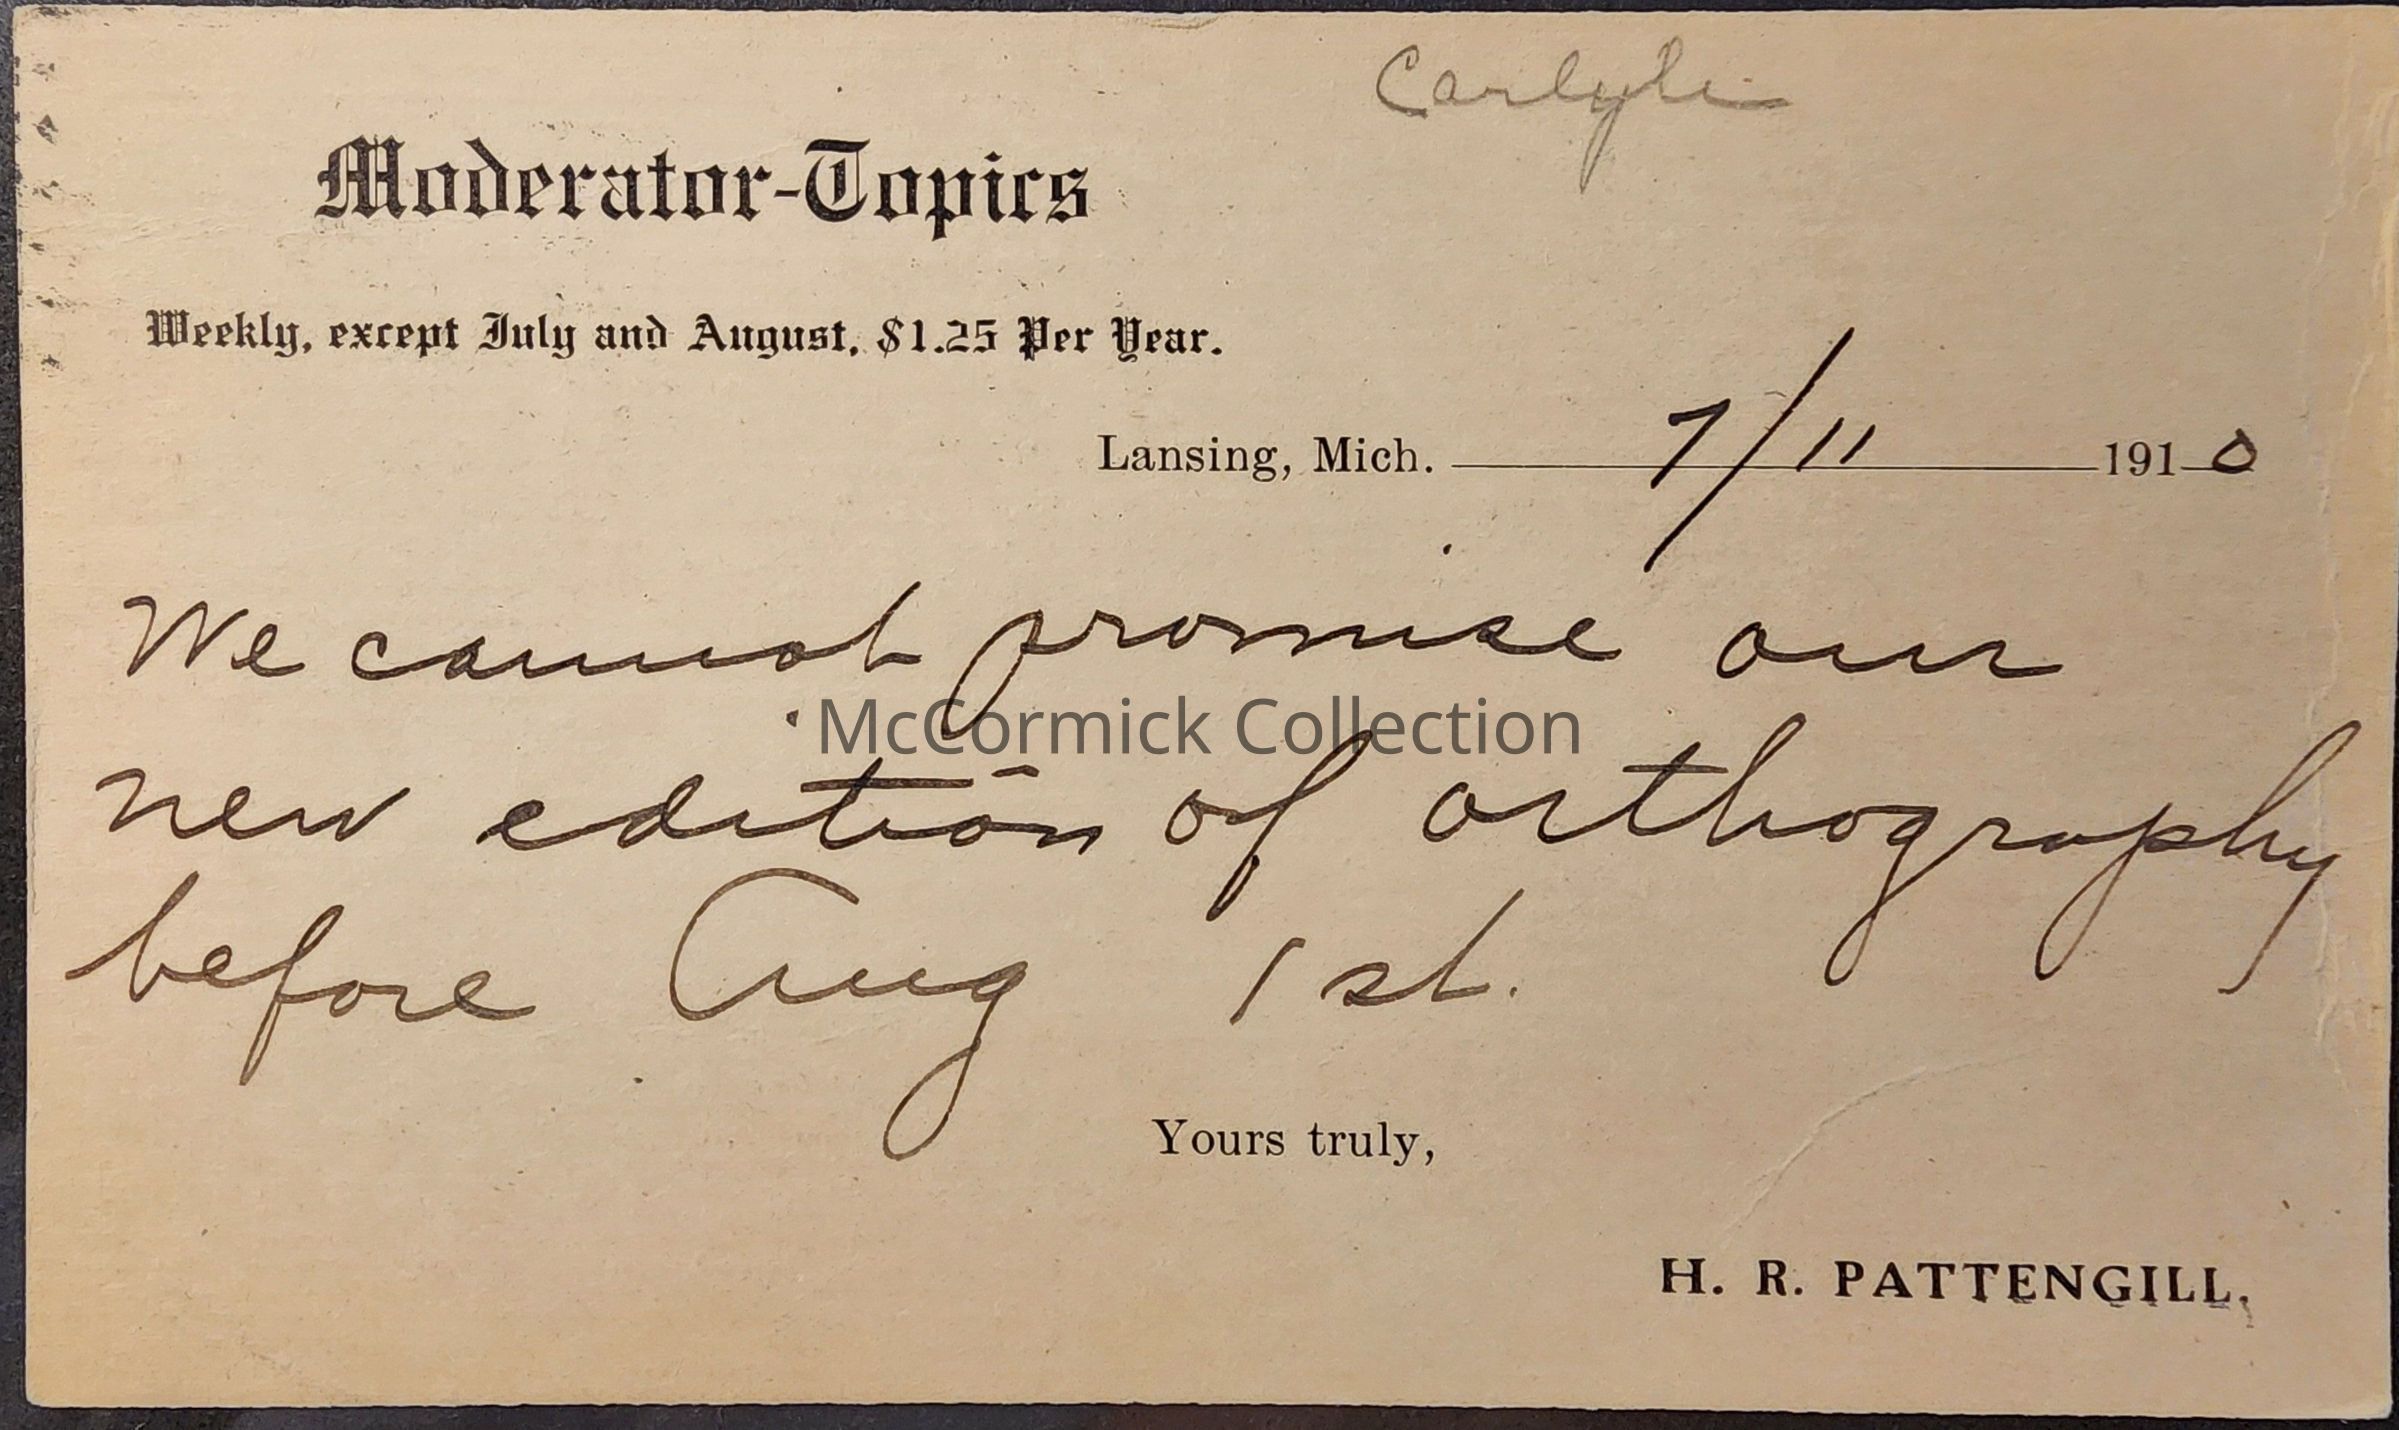 Carlyle
Moderator-Topics
Weekly, except July and August, $1.25 Per Year.
Lansing, Mich. 7/11 1910
We cannot promise our
McCormick Collection
new edition of orthography
before Aug 1st.
Yours truly,
H. R. PATTENGILL.